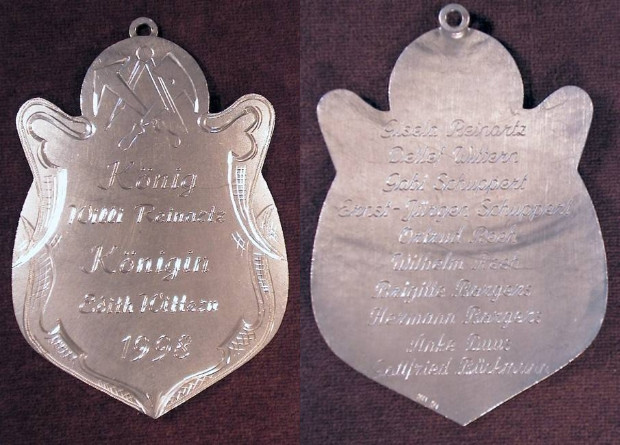 König
Willi Reinartz
Königin
Edith Wittern
1998
Gisela Reinartz
Detlef Wittern
Gabi Schuppert
Ernst-Jürgen Schuppert
Wilhelm
Brigitte Burgers
Hermann Burgers
Anke
Gottfried